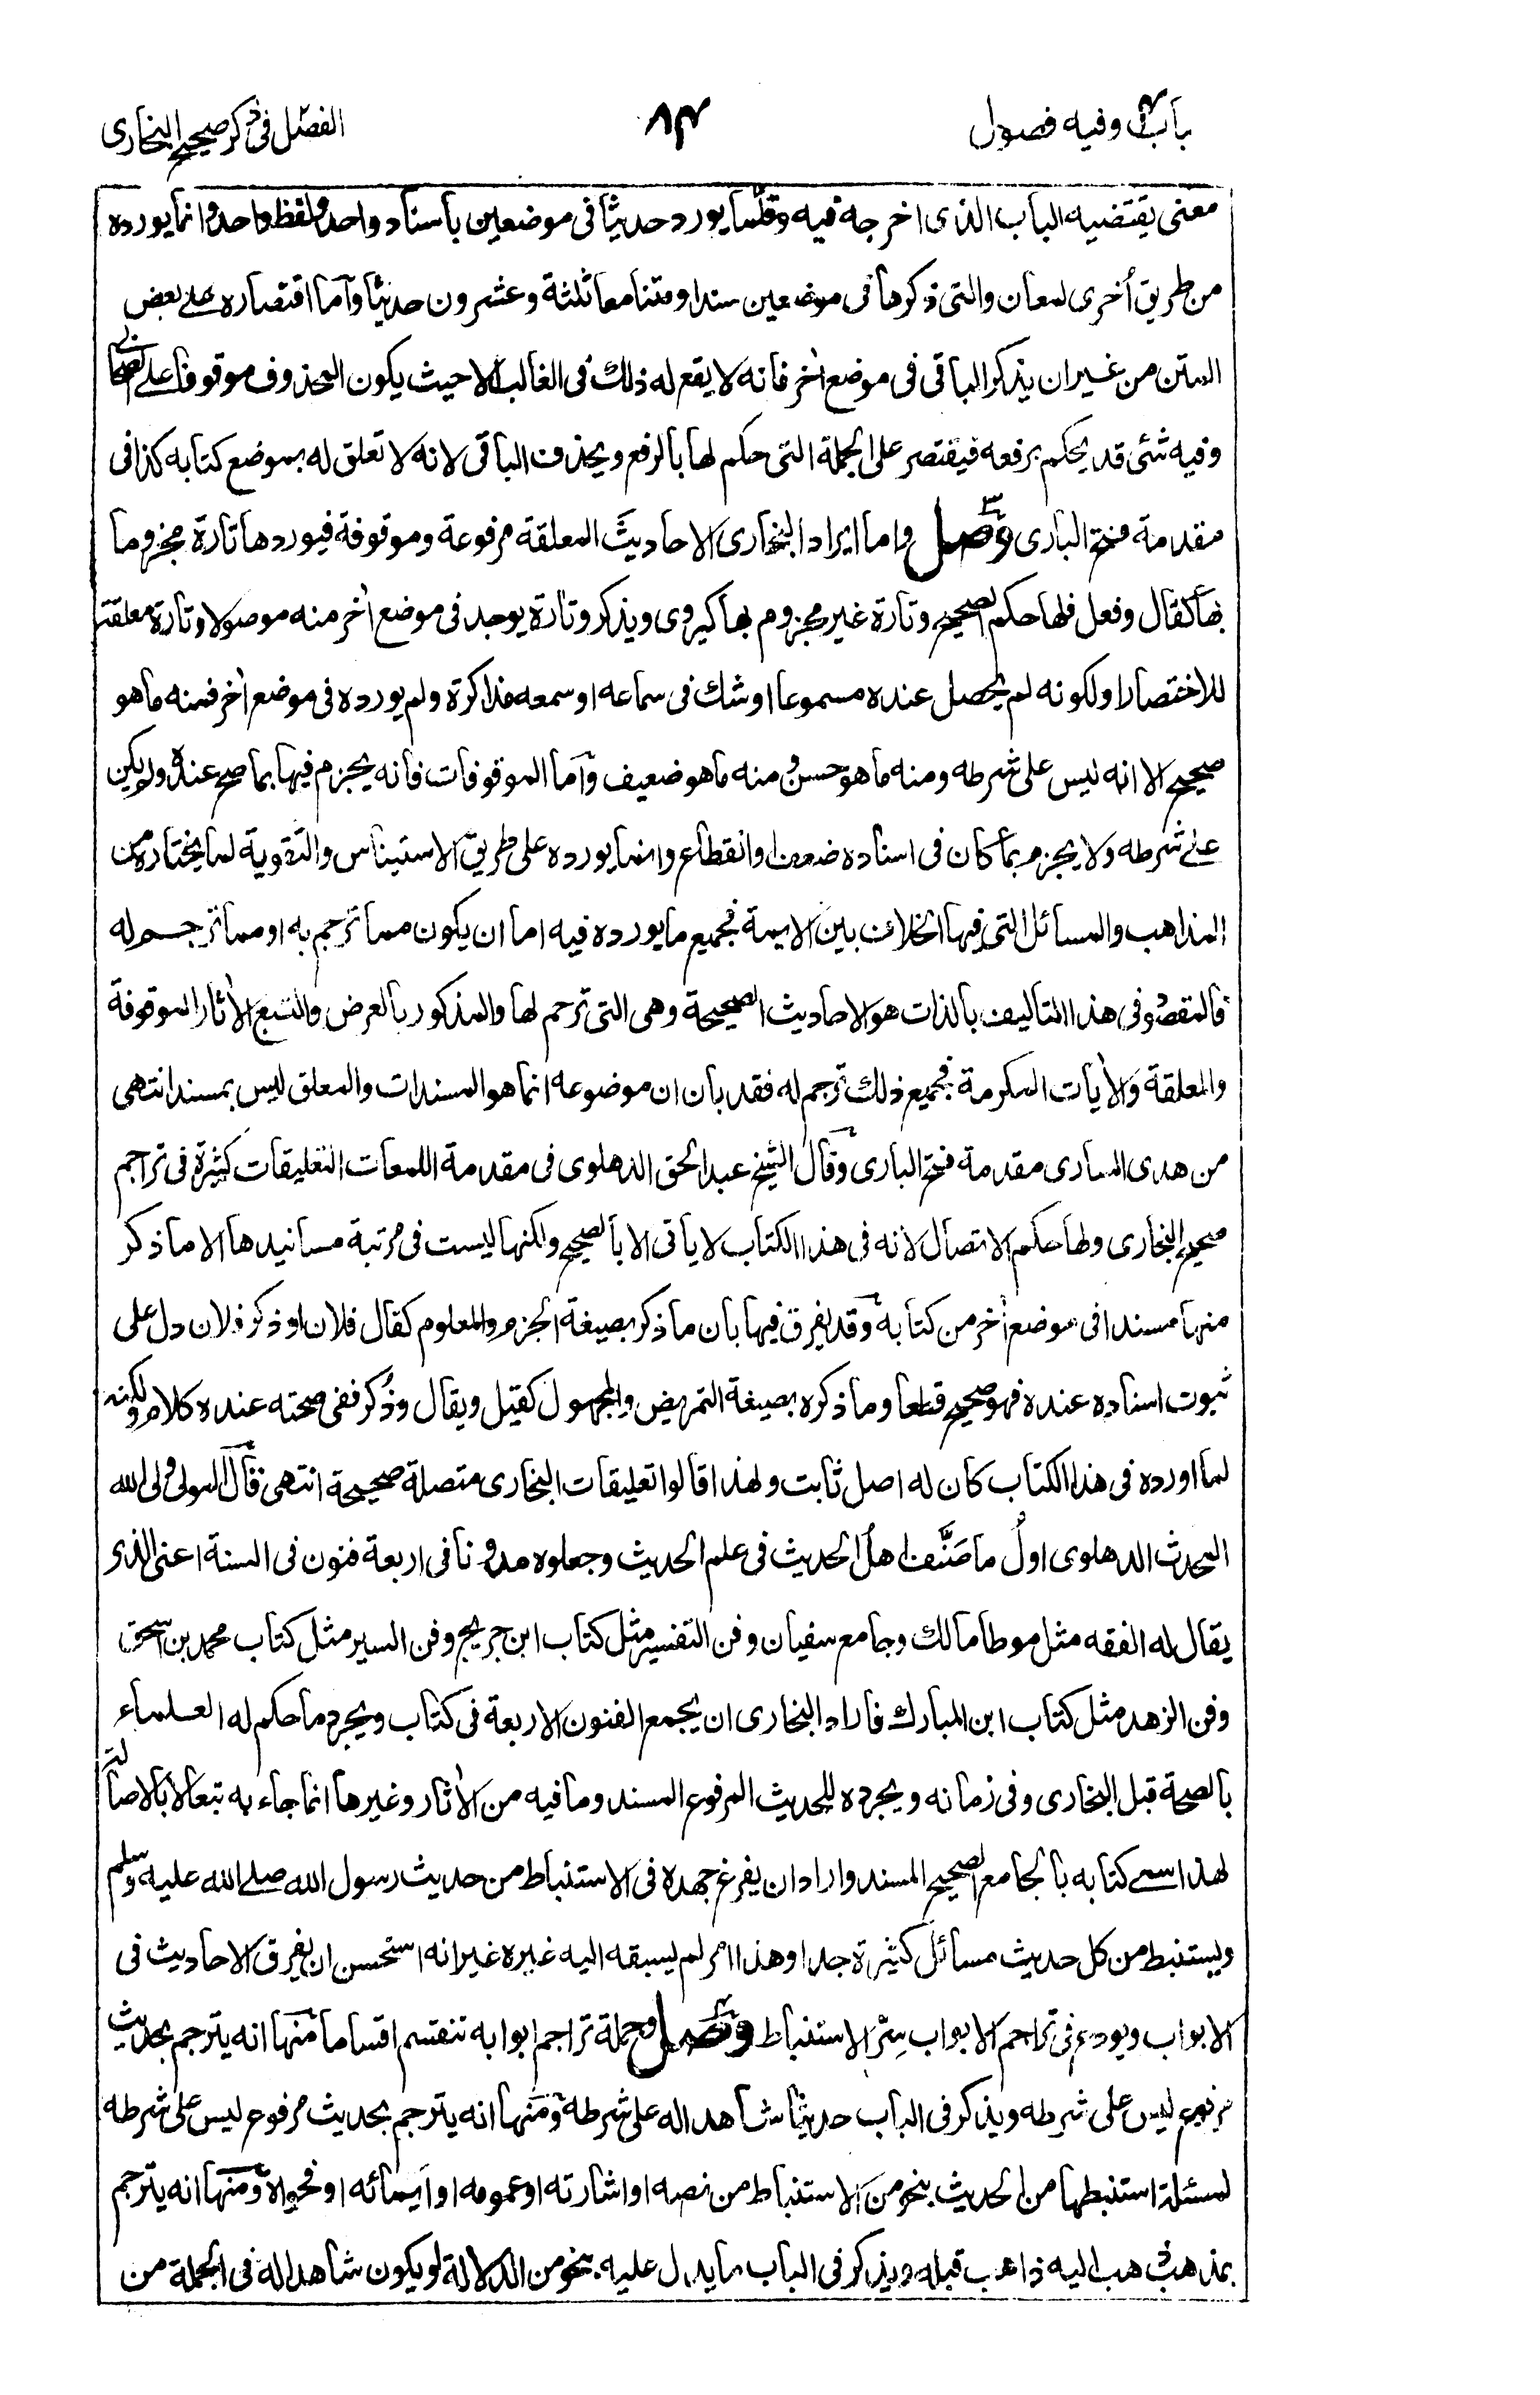 باب وفيه فصول
٨٣
الفصل فى ذكر صحيح البخارى
معنى يقتضيه الباب الذى اخرجه فيه وقلما يورد حديثا فى موضعين باسناد واحد ولفظ واحد وانما يورده
من طريق أخرى لمعان والتى ذكرها فى موضعين سندا ومتنا معا ثلثة وعشرون حديثا وأما اقتصاره على بعض
المتن من غير ان يذكر الباقى فى موضع اخر فانه لا يقع له ذلك فى الغالب الا حيث يكون المحذوف موقوفا على الصحابى
وفيه شئى قد يحكم برفعه فيقتصر على الجملة التى حكم لها بالرفع ويحذف الباقى لانه لا تعلق له بموضع كتابه كذا فى
مقدمة فتح البارى وصل واما ايراد البخارى الاحاديث المعلقة مرفوعة وموقوفة فيوردها تارة مجزوما
بها كقال وفعل فلها حكم الصحيح وتارة غير مجزوم بها كيروى ويذكر وتارة يوجد فى موضع اخر منه موصولا وتارة معلقة
للاختصار او لكونه لم يحصل عنده مسموعا او شك فى سماعه او سمعه مذاكرة ولم يورده فى موضع اخر فمنه ما هو
صحيح الا انه ليس على شرطه ومنه ما هو حسن ومنه ما هو ضعيف وأما الموقوفات فانه يجزم فيها بما صح عنده ولو لم يكن
على شرطه ولا يجزم بما كان فى اسناده ضعف او انقطاع وانما يورده على طريق الاستيناس والتقوية لما يختاره من
المذاهب والمسائل التى فيها الخلاف بين الايمة فجميع ما يورده فيه اما ان يكون مما ترجم به او مما ترجم له
فالمقصود فى هذا التاليف بالذات هو الاحاديث الصحيحة وهى التى ترجم لها والمذكور بالعرض والتبع الأثار الموقوفة
والمعلقة والأيات المكرمة فجميع ذلك ترجم له فقد بان ان موضوعه انما هو المسندات والمعلق ليس بمسند انتهى
من هدى السارى مقدمة فتح البارى وقال الشيخ عبد الحق الدهلوى فى مقدمة اللمعات التعليقات كثيرة فى تراجم
صحيح البخارى ولها حكم الاتصال لانه فى هذا الكتاب لا ياتى الا بالصحيح ولكنها ليست فى مرتبة مسانيدها الا ما ذكر
منها مسندا فى موضع أخر من كتابه وقد يفرق فيها بان ما ذكر بصيغة الجزم والمعلوم كقال فلان او ذكر فلان دل على
ثبوت اسناده عنده فهو صحيح قطعا وما ذكره بصيغة التمريض والمجهول كقيل ويقال وذُكر ففى صحته عنده كلام ولكنه
لما اورده فى هذا الكتاب كان له اصل ثابت ولهذا قالوا تعليقات البخارى متصلة صحيحة انتهى قال المولى ولى الله
المحدث الدهلوى اولُ ما صَنَّف اهلُ الحديث فى علم الحديث وجعلوه مدونا فى اربعة فنون فى السنة اعنى الذى
يقال له الفقه مثل موطا مالك وجامع سفيان وفن التفسير مثل كتاب ابن جريج وفن السير مثل كتاب محمد بن اسحق
وفن الزهد مثل كتاب ابن المبارك فاراد البخارى ان يجمع الفنون الاربعة فى كتاب ويجرد ما حكم له العلماء
بالصحة قبل البخارى وفى زمانه ويجرده للحديث المرفوع المسند وما فيه من الأثار وغيرها انما جاء به تبعا لا بالاصالة
لهذا سمى كتابه بالجامع الصحيح المسند واراد ان يفرغ جهده فى الاستنباط من حديث رسول الله صلى الله عليه وسلم
ويستنبط من كل حديث مسائل كثيرة جدا وهذا امر لم يسبقه اليه غيره غير انه استحسن ان يفرق الاحاديث فى
الابواب ويودع فى تراجم الابواب سِرّ الاستنباط وصل وجملة تراجم ابوابه تنقسم اقساما منها انه يترجم بحديث
مرفوع ليس على شرطه ويذكر فى الباب حديثا شاهدا له على شرطه ومنها انه يترجم بحديث مرفوع ليس على شرطه
لمسئلة استنبطها من الحديث بنحو من الاستنباط من نصه او اشارته او عمومه او ايمائه او فحواه ومنها انه يترجم
بمذهب ذهب اليه ذاهب قبله ويذكر فى الباب ما يدل عليه بنحو من الدلالة لو يكون شاهدا له فى الجملة من